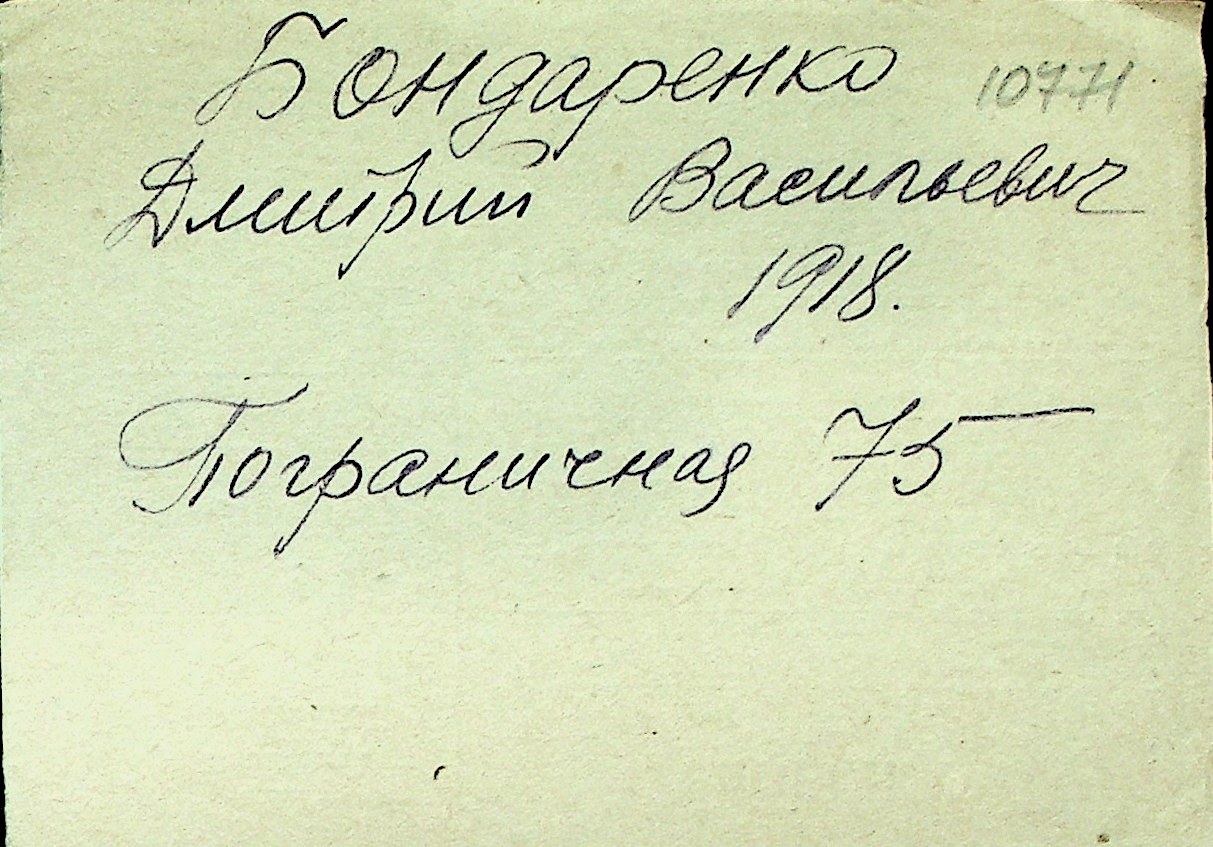 Бондаренко 10771
Дмитрий Васильевич
1918.
Пограничная 75